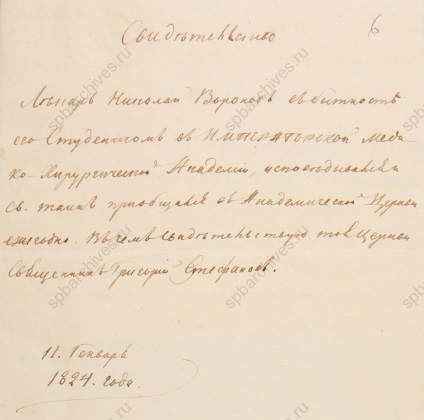 Свидѣтельство
6
Лѣкарь Николай Воронов въ бытность
его Студентомъ въ ИМПЕРАТОРСКОЙ Меди
ко-Хирургической Академіи, исповѣдывался и
св. таинъ пріобщался въ Академической Церкви
ежегодно. Въ чемъ свидѣтельствую той Церкви
Священникъ Григорій Стефановъ.
11. Генваря
1824. года.
spbarchives.ru